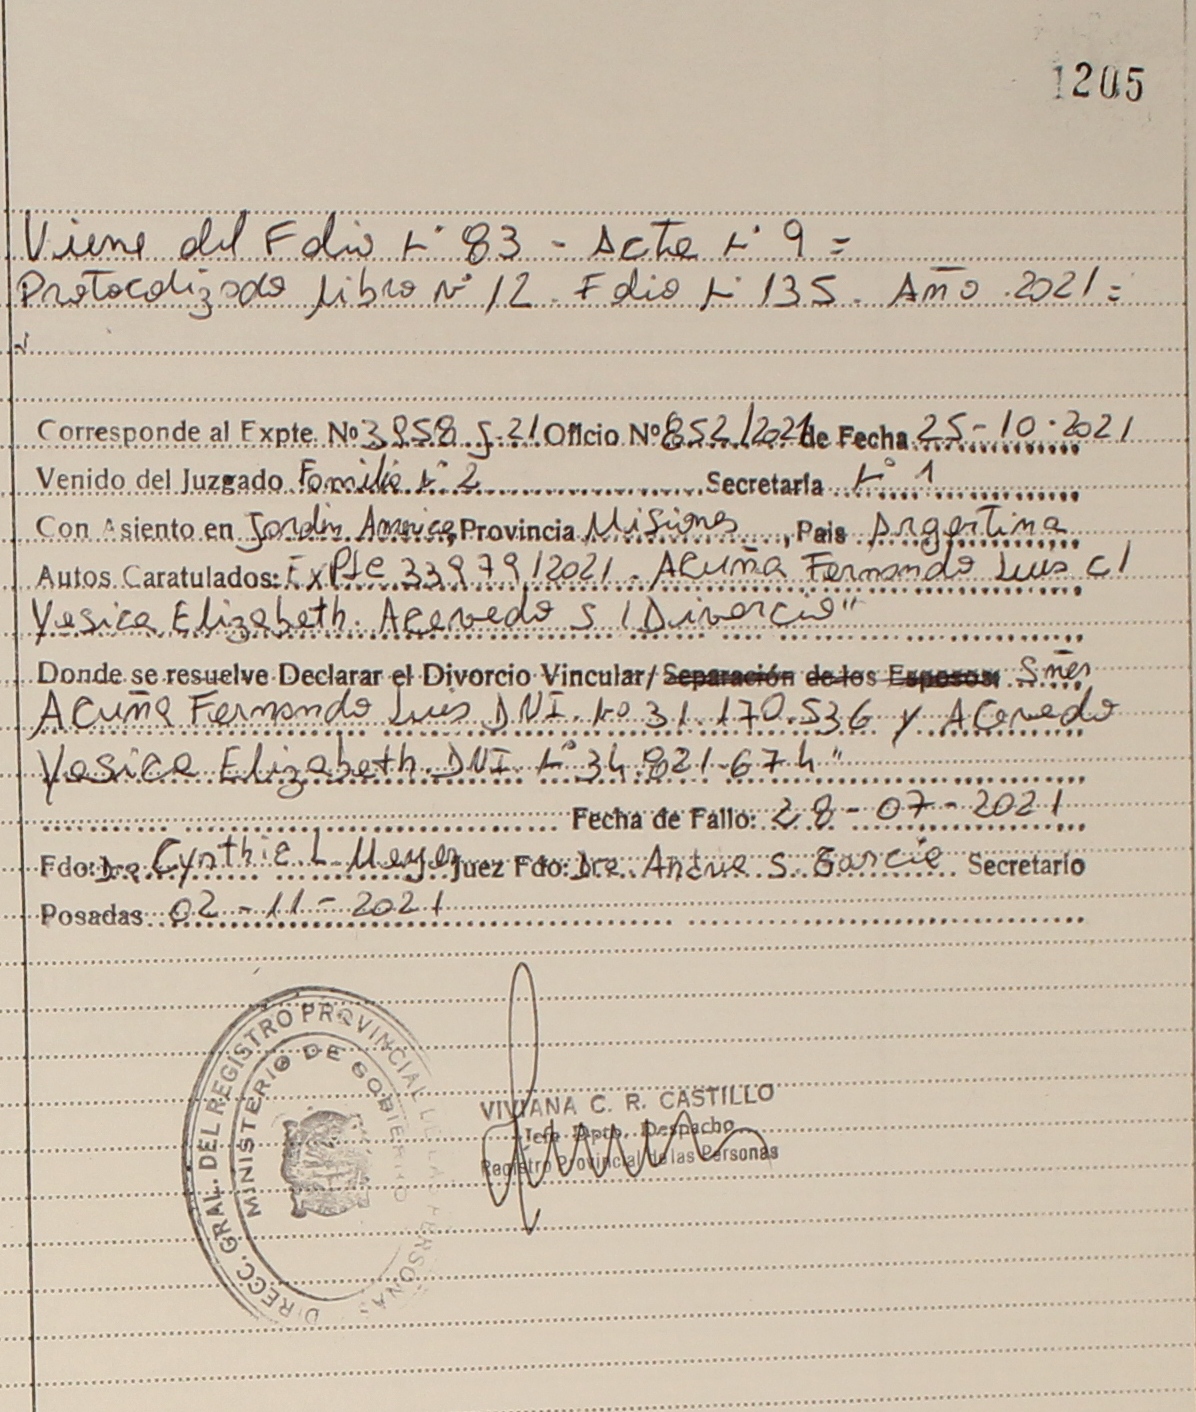 1205
Viene del Folio N° 83 - Acta N° 9 =
Protocolizado Libro N° 12. Folio N° 135. Año 2021 =
Corresponde al Expte. Nº 3958-J-21 Oficio Nº 852/2021 de Fecha 25-10-2021
Venido del Juzgado Familia N° 2 Secretaría N° 1
Con Asiento en Jardín América, Provincia Misiones, País Argentina
Autos Caratulados: Expte 33979/2021. Acuña Fernando Luis c/
Yesica Elizabeth. Acevedo S/Divorcio"
Donde se resuelve Declarar el Divorcio Vincular/ Separación de los Esposos, Sres
Acuña Fernando Luis DNI. Nº 31.170.536 y Acevedo
Yesica Elizabeth. DNI. N° 34.821.674"
Fecha de Fallo: 28-07-2021
Fdo: Dra Cynthia L. Meyer Juez Fdo: Dra. S. Garcia Secretario
Posadas 02-11-2021
DIRECC. GRAL. DEL REGISTRO PROVINCIAL DE LAS PERSONAS
MINISTERIO DE GOBIERNO
VIVIANA C. R. CASTILLO
Jefe Dpto. Despacho
Registro Provincial de las Personas